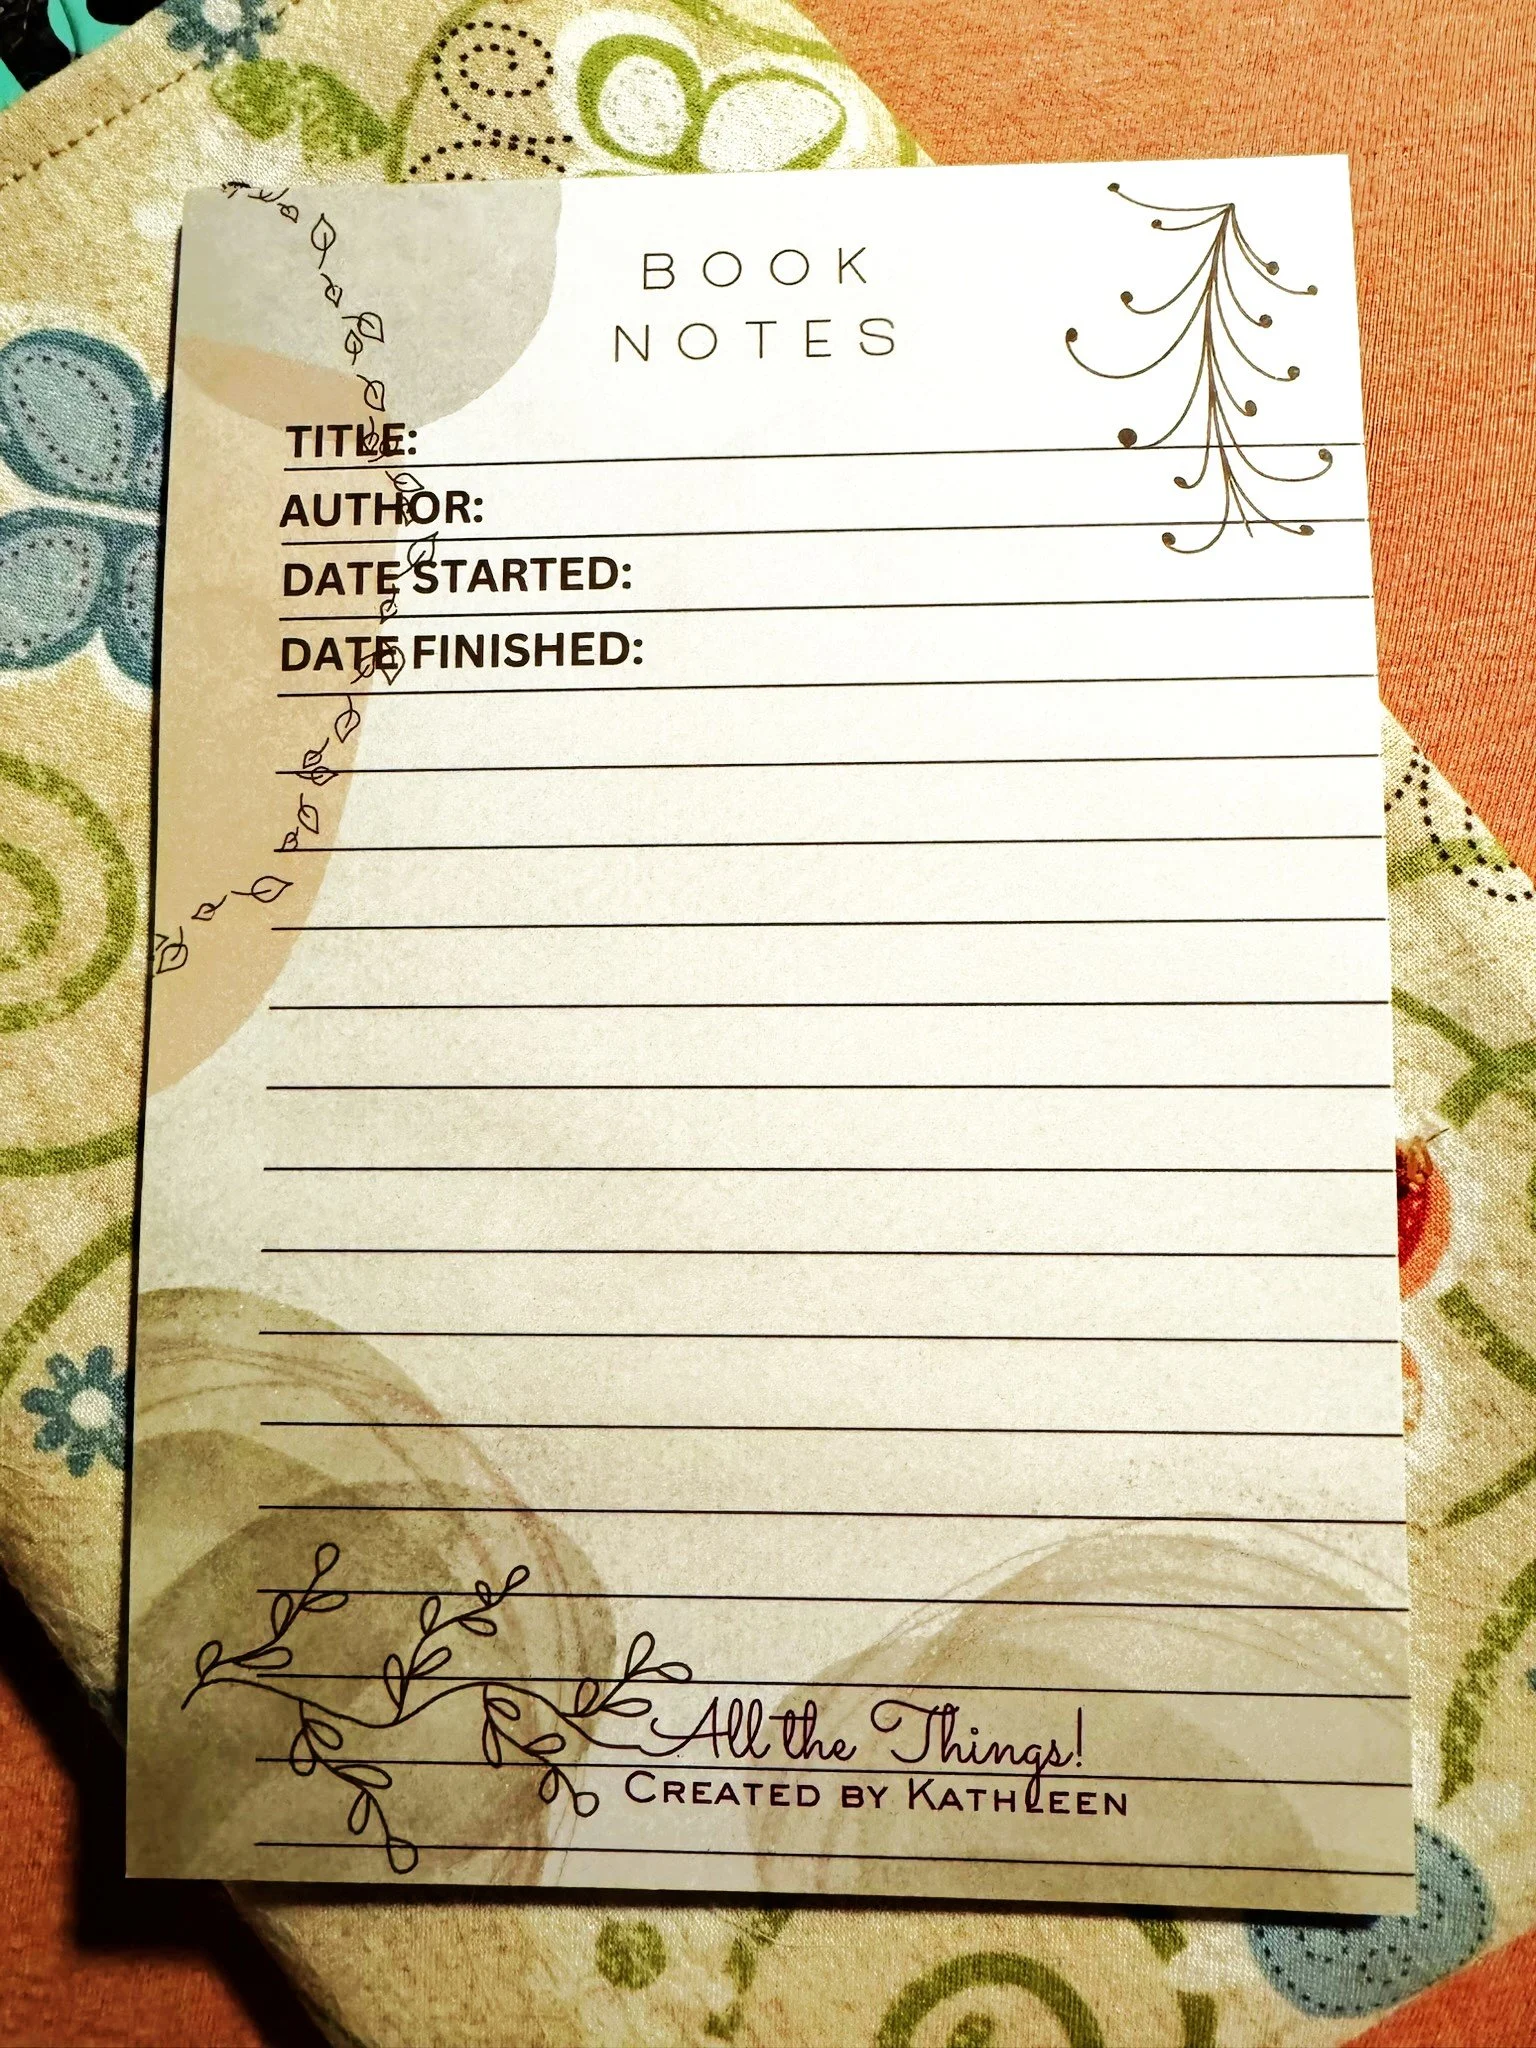 BOOK
NOTES
TITLE:
AUTHOR:
DATE STARTED:
DATE FINISHED:
All the Things!
CREATED BY KATHLEEN